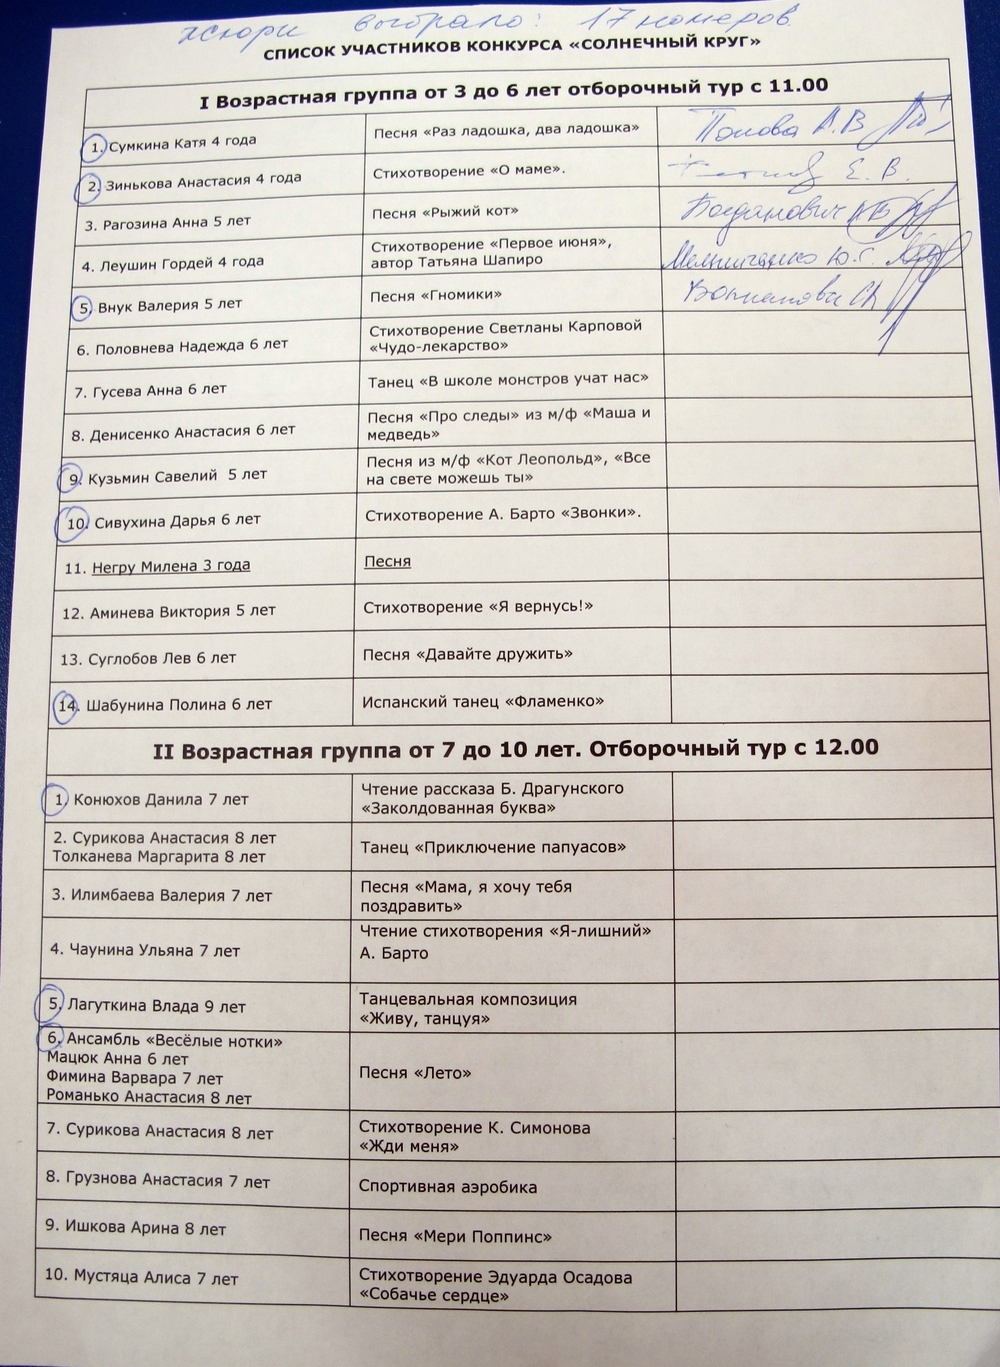 жюри выбрало: 17 номеров.
СПИСОК УЧАСТНИКОВ КОНКУРСА «СОЛНЕЧНЫЙ КРУГ»
I Возрастная группа от 3 до 6 лет отборочный тур с 11.00
1. Сумкина Катя 4 года
Песня «Раз ладошка, два ладошка»
Попова А.В
2. Зинькова Анастасия 4 года
Стихотворение «О маме».
Е. В.
3. Рагозина Анна 5 лет
Песня «Рыжий кот»
Богданович
4. Леушин Гордей 4 года
Стихотворение «Первое июня»,
автор Татьяна Шапиро
Мельниченко Ю.С.
5. Внук Валерия 5 лет
Песня «Гномики»
6. Половнева Надежда 6 лет
Стихотворение Светланы Карповой
«Чудо-лекарство»
7. Гусева Анна 6 лет
Танец «В школе монстров учат нас»
8. Денисенко Анастасия 6 лет
Песня «Про следы» из м/ф «Маша и
медведь»
9. Кузьмин Савелий 5 лет
Песня из м/ф «Кот Леопольд», «Все
на свете можешь ты»
10. Сивухина Дарья 6 лет
Стихотворение А. Барто «Звонки».
11. Негру Милена 3 года
Песня
12. Аминева Виктория 5 лет
Стихотворение «Я вернусь!»
13. Суглобов Лев 6 лет
Песня «Давайте дружить»
14. Шабунина Полина 6 лет
Испанский танец «Фламенко»
II Возрастная группа от 7 до 10 лет. Отборочный тур с 12.00
1. Конюхов Данила 7 лет
Чтение рассказа Б. Драгунского
«Заколдованная буква»
2. Сурикова Анастасия 8 лет
Толканева Маргарита 8 лет
Танец «Приключение папуасов»
3. Илимбаева Валерия 7 лет
Песня «Мама, я хочу тебя
поздравить»
4. Чаунина Ульяна 7 лет
Чтение стихотворения «Я-лишний»
А. Барто
5. Лагуткина Влада 9 лет
Танцевальная композиция
«Живу, танцуя»
6. Ансамбль «Весёлые нотки»
Мацюк Анна 6 лет
Фимина Варвара 7 лет
Романько Анастасия 8 лет
Песня «Лето»
7. Сурикова Анастасия 8 лет
Стихотворение К. Симонова
«Жди меня»
8. Грузнова Анастасия 7 лет
Спортивная аэробика
9. Ишкова Арина 8 лет
Песня «Мери Поппинс»
10. Мустяца Алиса 7 лет
Стихотворение Эдуарда Осадова
«Собачье сердце»